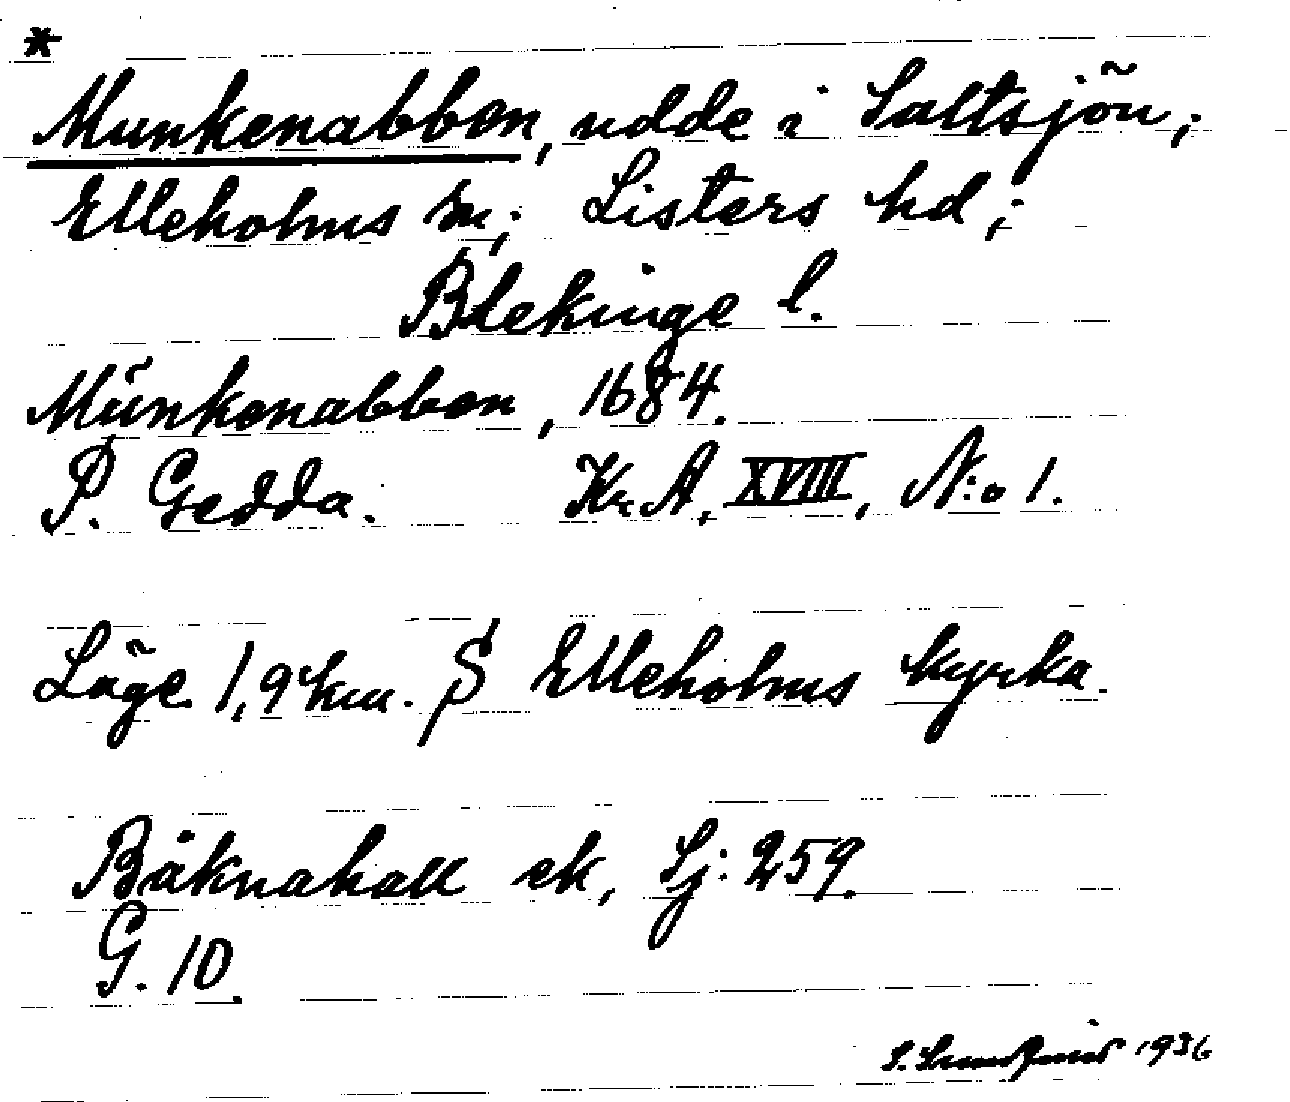 *
Munkenabben, udde i Saltsjön,
Elleholms sn; Listers hd;
Blekinge l.
Munkenabben, 1684.
P. Gedda. Kr. A. XVIII, N:o 1.
Läge 1,9 km. S Elleholms kyrka.
Båknahall ek, Sj: 259.
G. 10.
S. Lundquist 1936